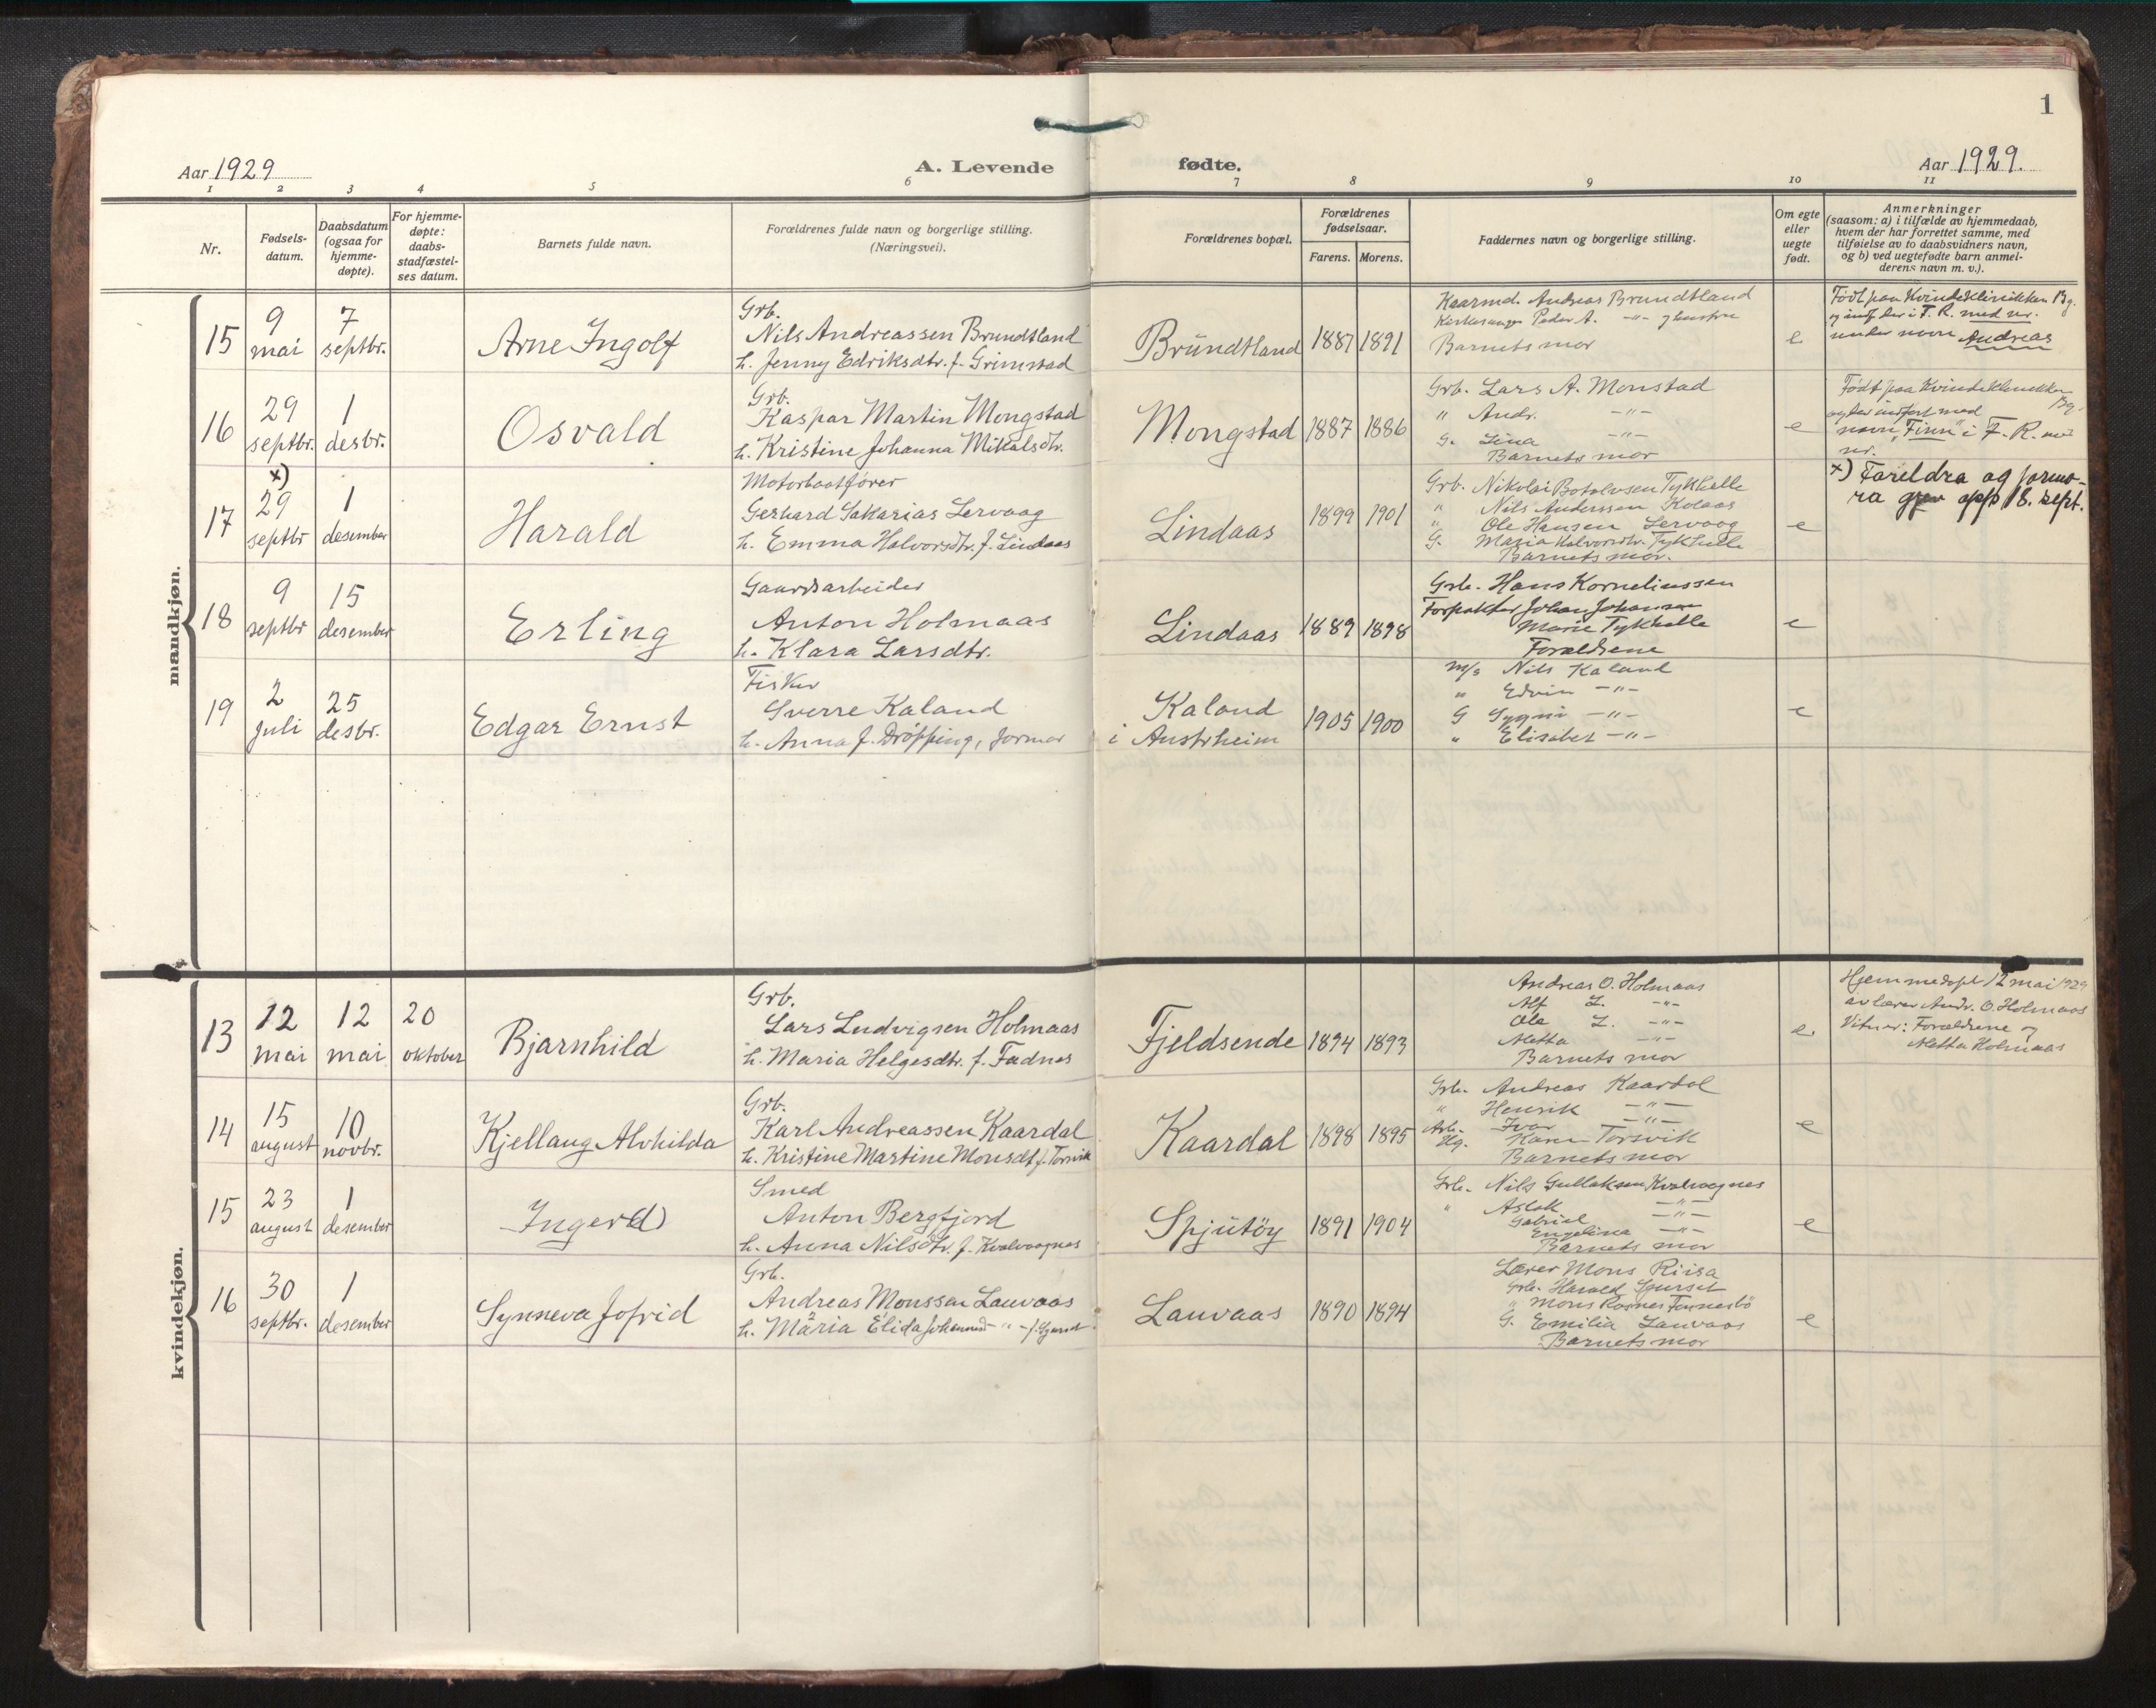 1
Aar 1929
A. Levende
fødte.
Aar 1929.
1 2 3 4 5 6 7 8 9 10 11
Nr.
Fødsels-
datum.
Daabsdatum
(ogsaa for
hjemme-
døpte).
For hjemme-
døpte:
daabs-
stadfæstel-
ses datum.
Barnets fulde navn.
Forældrenes fulde navn og borgerlige stilling.
(Næringsvei).
Forældrenes bopæl.
Forældrenes
fødselsaar.
Farens. Morens.
Faddernes navn og borgerlige stilling.
Om egte
eller
uegte
født.
Anmerkninger
(saasom: a) i tilfælde av hjemmedaab,
hvem der har forrettet samme, med
tilføielse av to daabsvidners navn,
og b) ved uegtefødte barn anmel-
derens navn m. v.).
mandkjøn.
15
9
mai
7
septbr.
Arne Ingolf
Grb.
Nils Andreassen Brundtland
h. Jenny Edriksdtr. f. Grimstad
Brundtland
1887 1891
Kaarmd. Andreas Brundtland
Kirkesanger Peder A. -"- og hustru
Barnets mor
e
Født paa Kvindeklinikken Bg.
og indf. der i F. R. med nr.
under navn Andreas
16
29
septbr.
1
desbr.
Osvald
Grb.
Kaspar Martin Mongstad
h. Kristine Johanna Mikalsdtr.
Mongstad
1887 1886
Grb. Lars A. Monstad
" Andr. -"-
G. Lina -"-
Barnets mor
e
Født paa Kvindeklinikken
Bg.
og der indført med
navn "Finn" i F. R. med
nr.
17
x)
29
septbr
1
desember
Harald
Motorbaatfører
Gerhard Sakarias Lervaag
h. Emma Halvorsdtr. f. Lindaas
Lindaas
1899 1901
Grb. Nikolai Botolvsen Tykhelle
" Nils Anderssen Kolaas
" Ole Hansen Lervaag
G. Maria Halvorsdtr. Tykhelle
Barnets mor.
e
x) Foreldra og jormo-
ra gjev opp 18. sept.
18
9
septbr
15
desember
Erling
Gaardsarbeider
Anton Holmaas
h. Klara Larsdtr.
Lindaas
1889 1898
Grb. Hans Korneliussen
Forpakter Johan Johansen
Marie Tykhelle
Forældrene
e
19
2
juli
25
desbr.
Edgar Ernst
Fisker
Sverre Kaland
h. Anna f. Drøpping, jormor
Kaland
i Austrheim
1905 1900
m/s Nils Kaland
" Edvin -"-
G -"-
" Elisabet -"-
e
kvindekjøn.
13
12
mai
12
mai
20
oktober
Bjarnhild
Grb.
Lars Ludvigsen Holmaas
h. Maria Helgesdtr. f. Fadnes
Fjeldsende
1894 1893
Andreas O. Holmaas
Alf L. -"-
Ole L. -"-
Aletta -"-
Barnets mor
e.
Hjemmedøpt 12 mai 1929
av lærer Andr. O. Holmaas
Vitner: Forældrene og
Aletta Holmaas
14
15
august
10
novbr.
Kjellaug Alvhilda
Grb.
Karl Andreassen Kaardal
h. Kristine Martine Monsdt f. Torsvik
Kaardal
1898 1895
Grb. Andreas Kaardal
" Henrik -"-
Arb. Ivar -"-
Hg. Karen Torsvik
Barnets mor
e
15
23
august
1
desember
Inger(d)
Smed
Anton Bergfjord
h. Anna Nilsdtr. f. Kvalvaagnes
Spjutöy
1891 1904
Grb. Nils Gullaksen Kvalvagnes
" Aslak -"-
Gabriel -"-
Engeline -"-
Barnets mor
e
16
30
septbr.
1
desember
Synneva Jofrid
Grb.
Andreas Monssen Lauvaas
h. Maria Elida Johannesd -"-
Lauvaas
1890 1894
Lærer Mons Riisa
Grb. Harald
" Mons
G. Emilia Lauvaas
Barnets mor
e